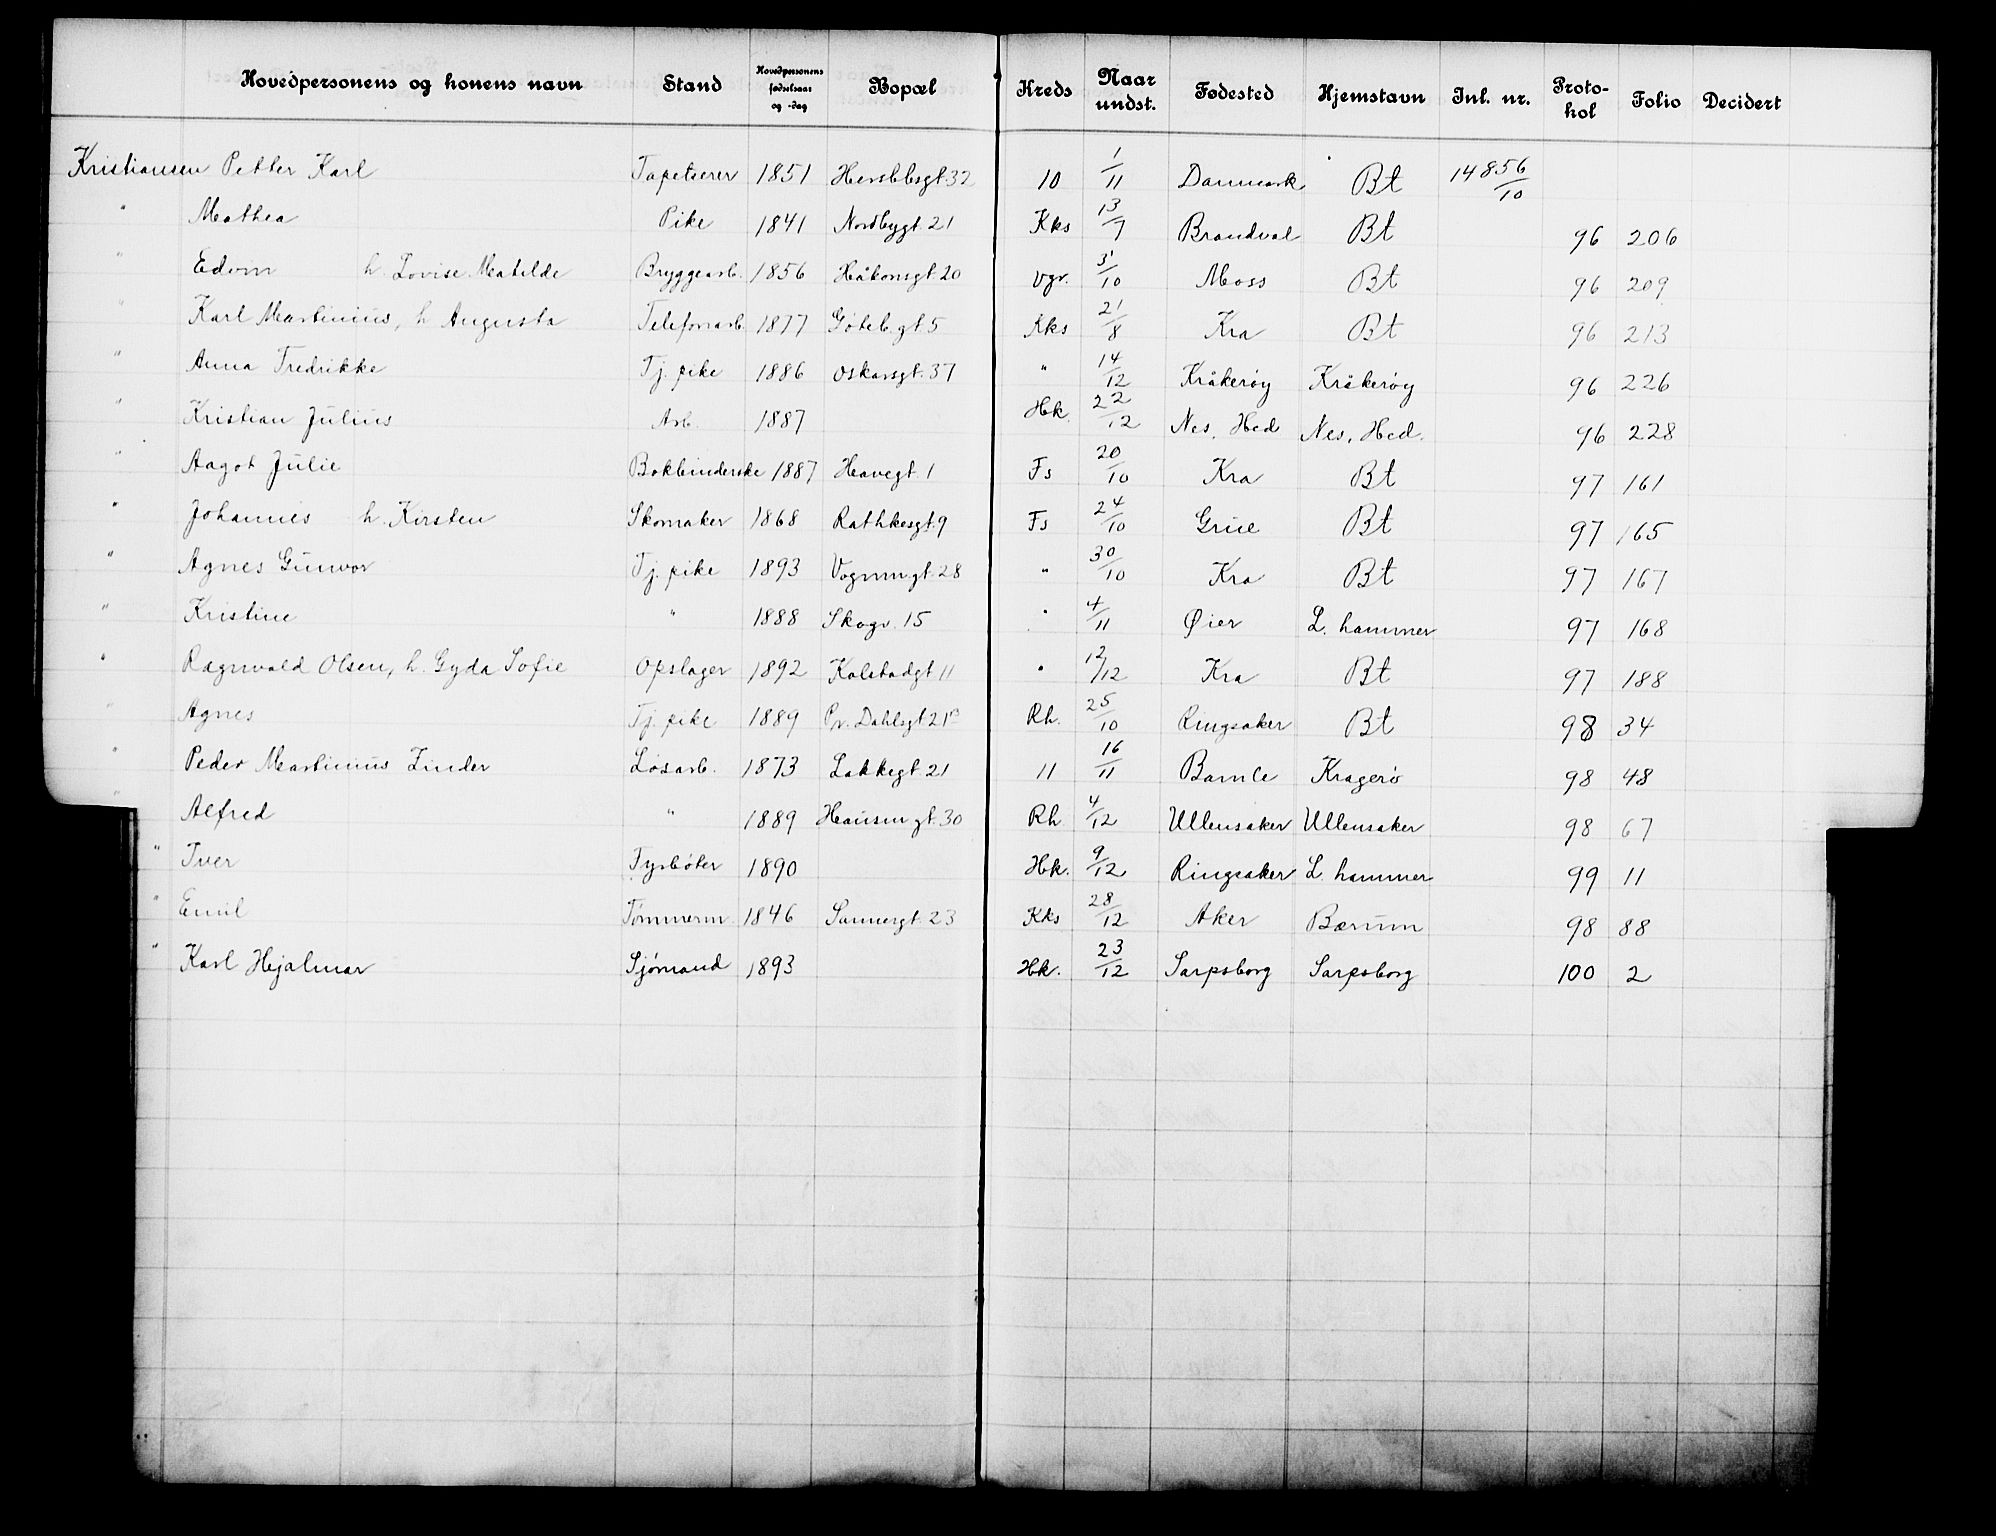 Hovedpersonens og konens navn Stand Hovedpersonens fødselsaar og -dag Bopæl Kreds Naar undst. Fødested Hjemstavn Inl. nr. Protokol Folio Decidert
Kristiansen Petter Karl Tapetserer 1851 Herslebsgt 32 10 1/11 Danmark Bt 14856/10
" Mathea Pike 1841 Nordbygt. 21 Kks 13/7 Brandval Bt 96 206
" Edvin h. Lovise Matilde Bryggearb. 1856 Håkonsgt. 20 Vgr. 31/10 Moss Bt 96 209
" Karl Martinius, h Augusta Telefonarb. 1877 Gøteb.gt. 5 Kks 21/8 Kra Bt 96 213
" Anna Fredrikke Tj. pike 1886 Oskarsgt. 37 " 14/12 Kråkerøy Kråkerøy 96 226
" Kristian Julius Arb. 1887 Hk. 22/12 Nes, Hed Nes, Hed. 96 228
" Aagot Julie Bokbinderske 1887 Havegt. 1 Fs 20/10 Kra Bt 97 161
" Johannes h. Kirsten Skomaker 1868 Rathkesgt. 9 Fs 24/10 Grue Bt 97 165
" Agnes Gunvor Tj. pike 1893 Vognmgt. 28 " 30/10 Kra Bt 97 167
" Kristine " 1888 Skogv. 15 " 4/11 Øier L. hammer 97 168
" Ragnvald Olsen, h. Gyda Sofie Opslager 1892 Kolstadgt 11 " 12/12 Kra Bt 97 188
" Agnes Tj. pike 1889 Pr. Dahlsgt 21B Rh. 25/10 Ringsaker Bt 98 34
" Peder Martinius Linder Løsarb. 1873 Lakkegt. 21 11 16/11 Bamle Kragerø 98 48
" Alfred " 1889 Hausm gt. 30 Rh 4/12 Ullensaker Ullensaker 98 67
" Iver Fyrbøter 1890 Hk. 9/12 Ringsaker L. hammer 99 11
" Emil Tømmerm. 1846 Sannergt. 23 Kks 28/12 Aker Bærum 98 88
" Karl Hjalmar Sjømand 1893 Hk. 23/12 Sarpsborg Sarpsborg 100 2